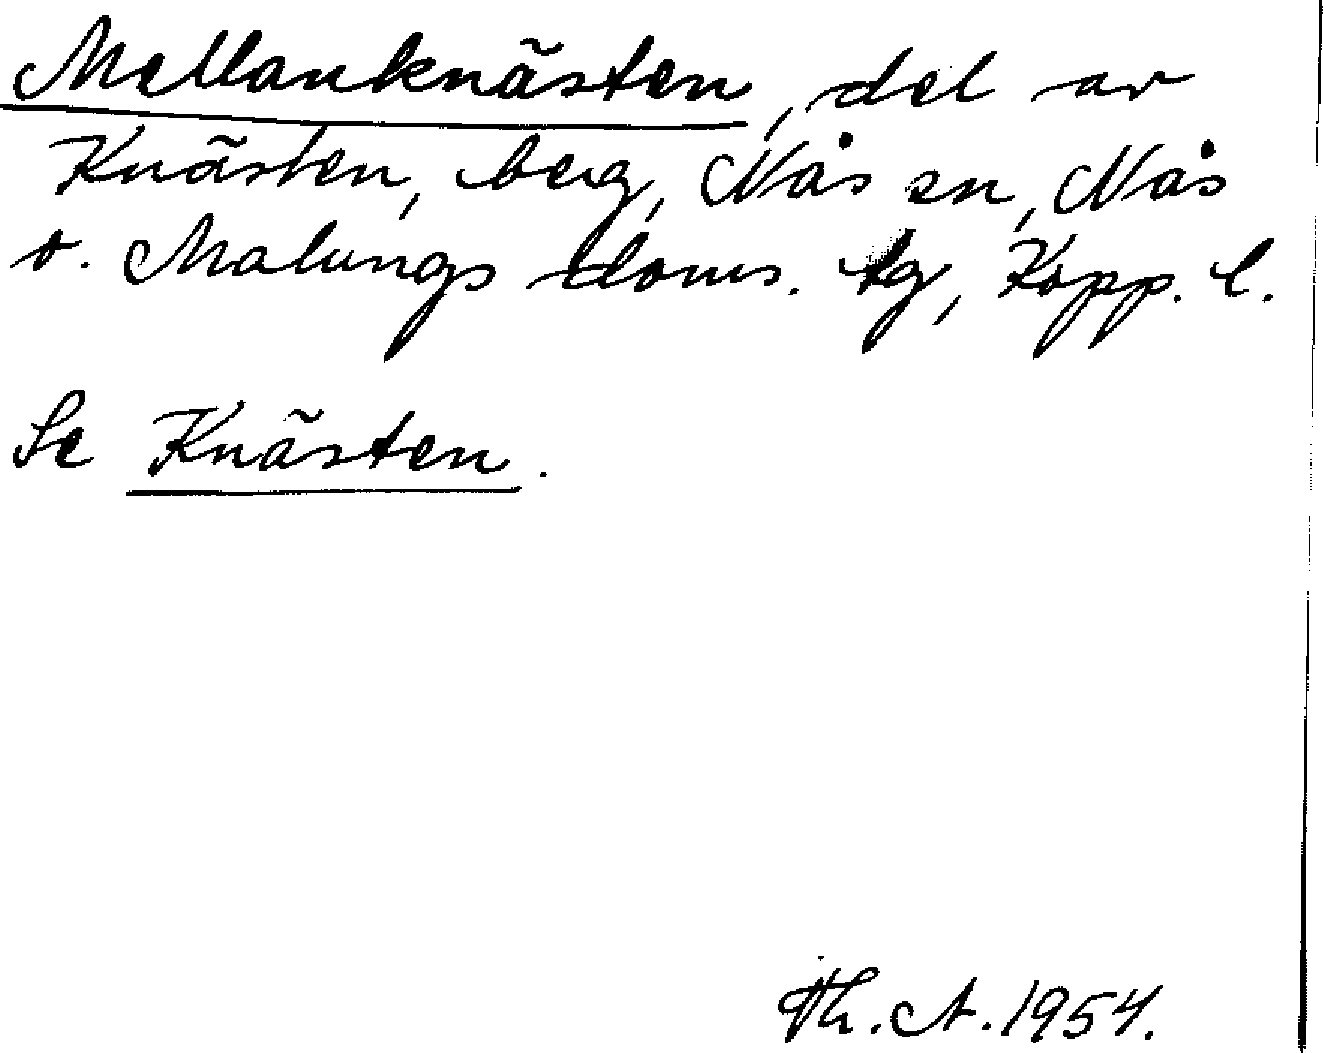 Mellanknästen, del av
Knästen, berg, Nås sn, Nås
o. Malungs doms. tg, Kopp. l.
Se Knästen.
Th. A. 1954.